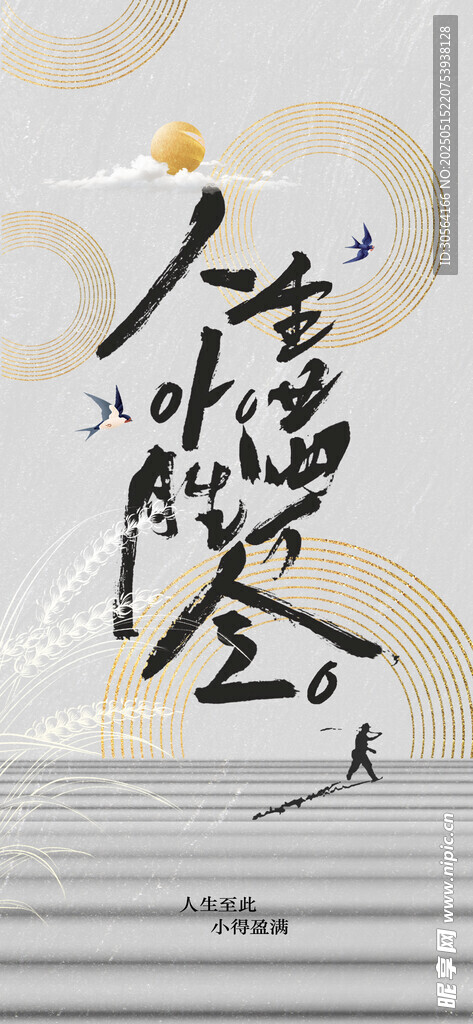 人生
小满
胜万
全。
人生至此
小得盈满
ID:30564166 NO:20250515220753938128
昵享网 www.nipic.cn